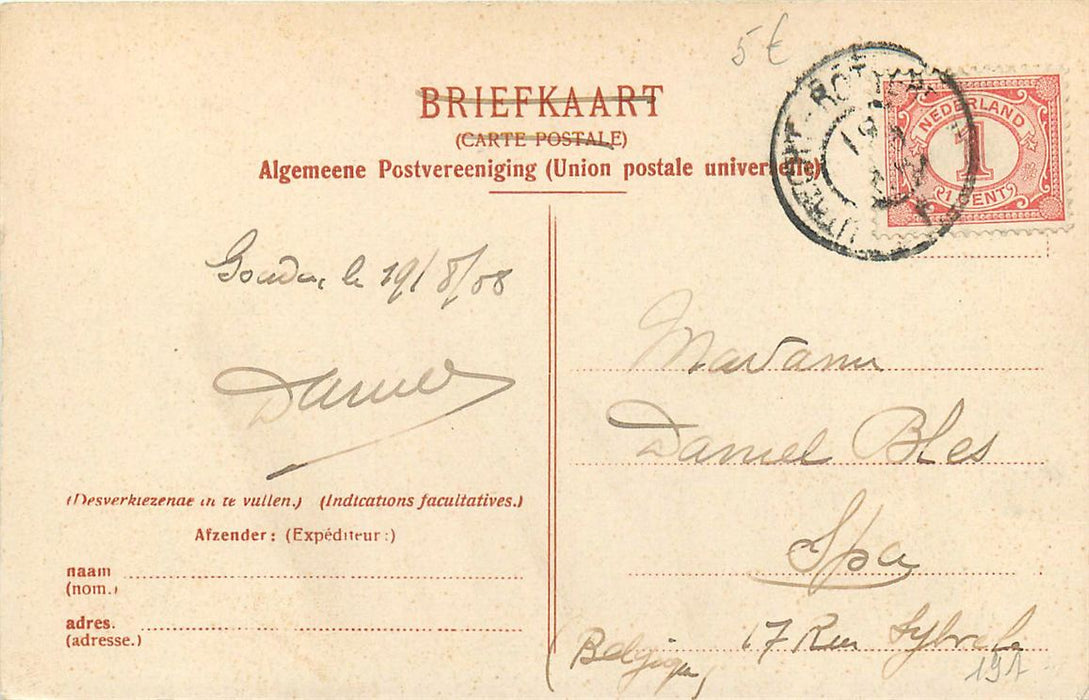 5 €
BRIEFKAART
(CARTE POSTALE)
Algemeene Postvereeniging (Union postale universelle)
UTRECHT - ROTTERDAM
NEDERLAND
1
1 CENT
Gouda, le 19/8/08
Daniel
Madame
Daniel Bles
Spa
17 Rue
(Belgique)
(Desverkiezende in te vullen.) (Indications facultatives.)
Afzender: (Expéditeur:)
naam
(nom.)
adres.
(adresse.)
191